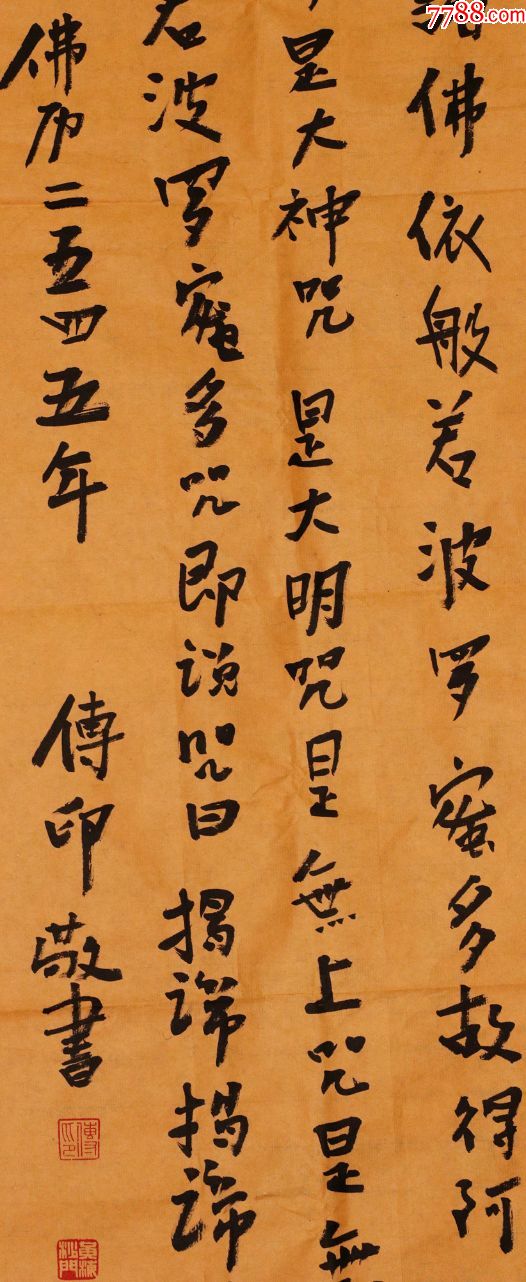 7788.com
諸佛依般若波罗蜜多故得阿
是大神咒是大明咒是無上咒是無
若波罗蜜多咒即说咒曰揭諦揭諦
佛历二五四五年 傳印敬書
傳印
黄梅沙門